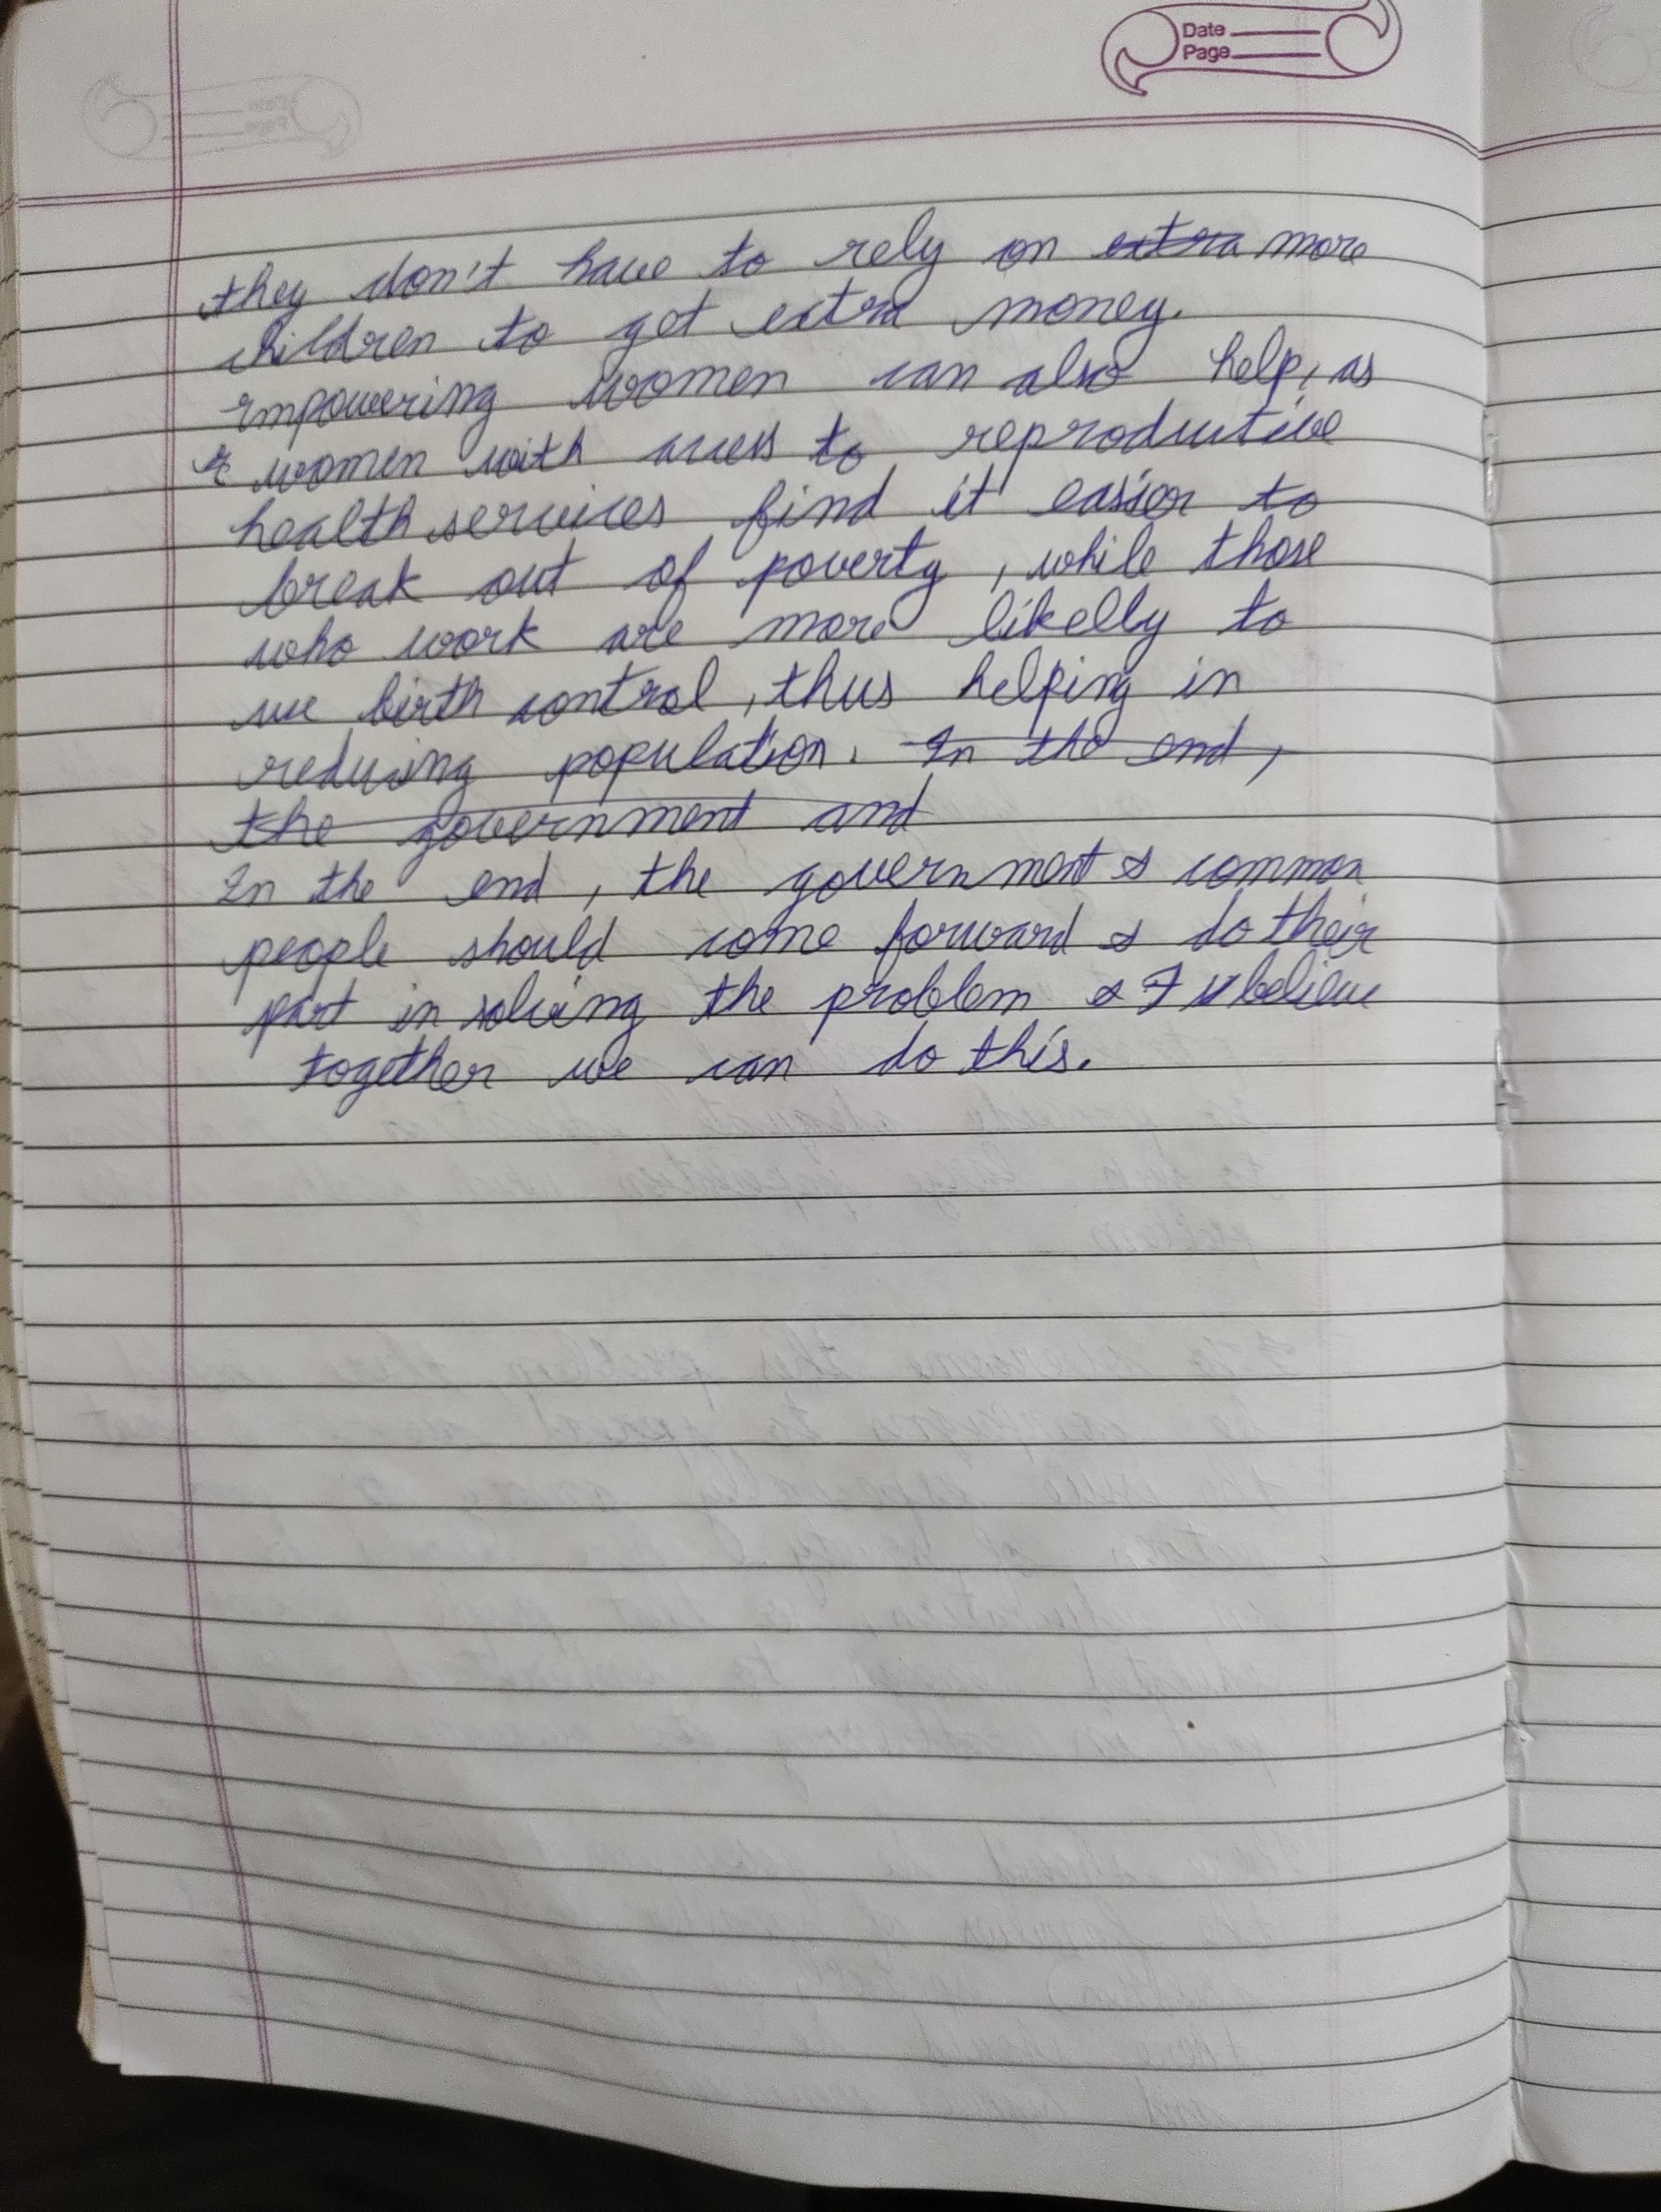 Date
Page
they don't have to rely on extra more
children to get extra money.
Empowering women can also help, as
women with access to reproductive
health services find it easier to
break out of poverty, while those
who work are more likelly to
use birth control, thus helping in
reducing population. In the end,
the government and
In the end, the government & common
people should come forward & do their
part in solving the problem & I believe
together we can do this.